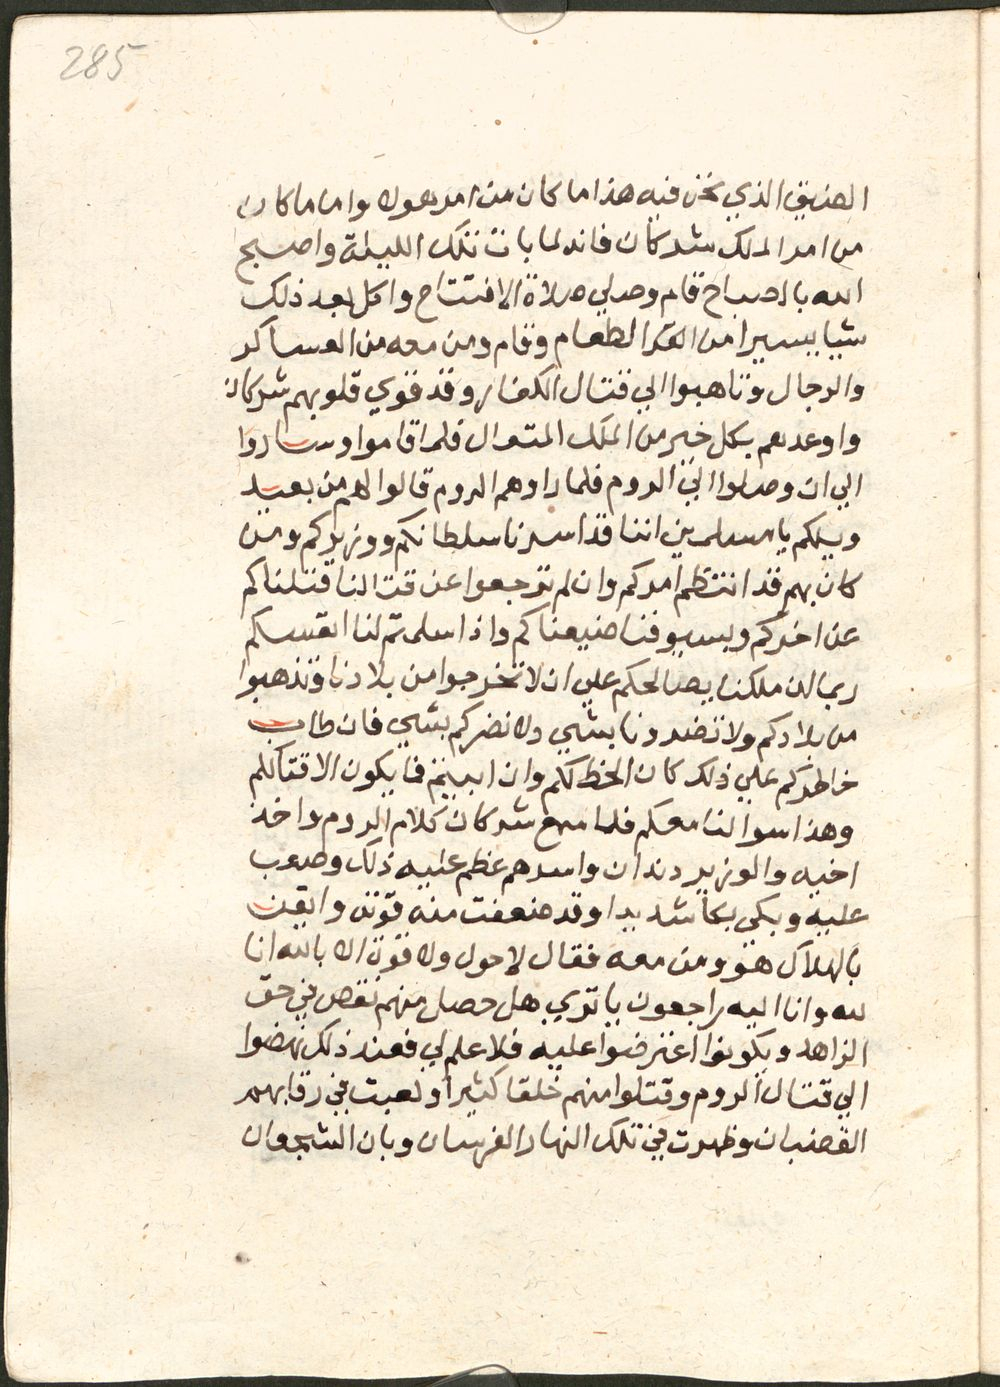 285
الضيق الذي نحن فيه هذا ما كان من امر هولا واما ما كان
من امر الملك شركان فانه لما بات تلك الليلة واصبح
الله بالصباح قام وصلي صلاة الافتتاح واكل بعد ذلك
شيا يسيرا من الطعام وقام ومن معه من العساكر
والرجال وتاهبوا الي قتال الكفار وقد قوي قلوبهم شركان
واوعدهم بكل خير من الملك المتعال فلما قاموا وساروا
الي ان وصلوا الي الروم فلما راوهم الروم قالوا لهم من بعيد
ويلكم يا مسلمين اننا قد اسرنا سلطانكم ووزيركم ومن
كان بهم قد انتظم امركم وان لم ترجعوا عن قتالنا قتلناكم
عن اخركم وبسيوفنا ضيعناكم واذا سلمتم لنا انفسكم
ربما ان ملكنا يصالحكم علي ان لا تخرجوا من بلادنا وتذهبوا
من بلادكم ولا تضرونا بشي ولا نضركم بشي فان طاب
خاطركم علي ذلك كان الحظ لكم وان ابيتم فما يكون الا قتالكم
وهذا سوالنا معكم فلما سمع شركان كلام الروم واخذ
اخيه والوزير دندان واسرهم عظم عليه ذلك وصعب
عليه وبكي بكا شديدا وقد ضعفت منه قوته وايقن
بالهلاك هو ومن معه فقال لا حول ولا قوة الا بالله انا
لله وانا اليه راجعون يا تري هل حصل منهم نقص في حق
الزاهد ويكونوا اعترضوا عليه فلا علم لي فعند ذلك نهضوا
الي قتال الروم وقتلوا منهم خلقا كثيرا ولعبت في رقابهم
القضبان وظهرت في تلك النهار الفرسان وبان الشجعان